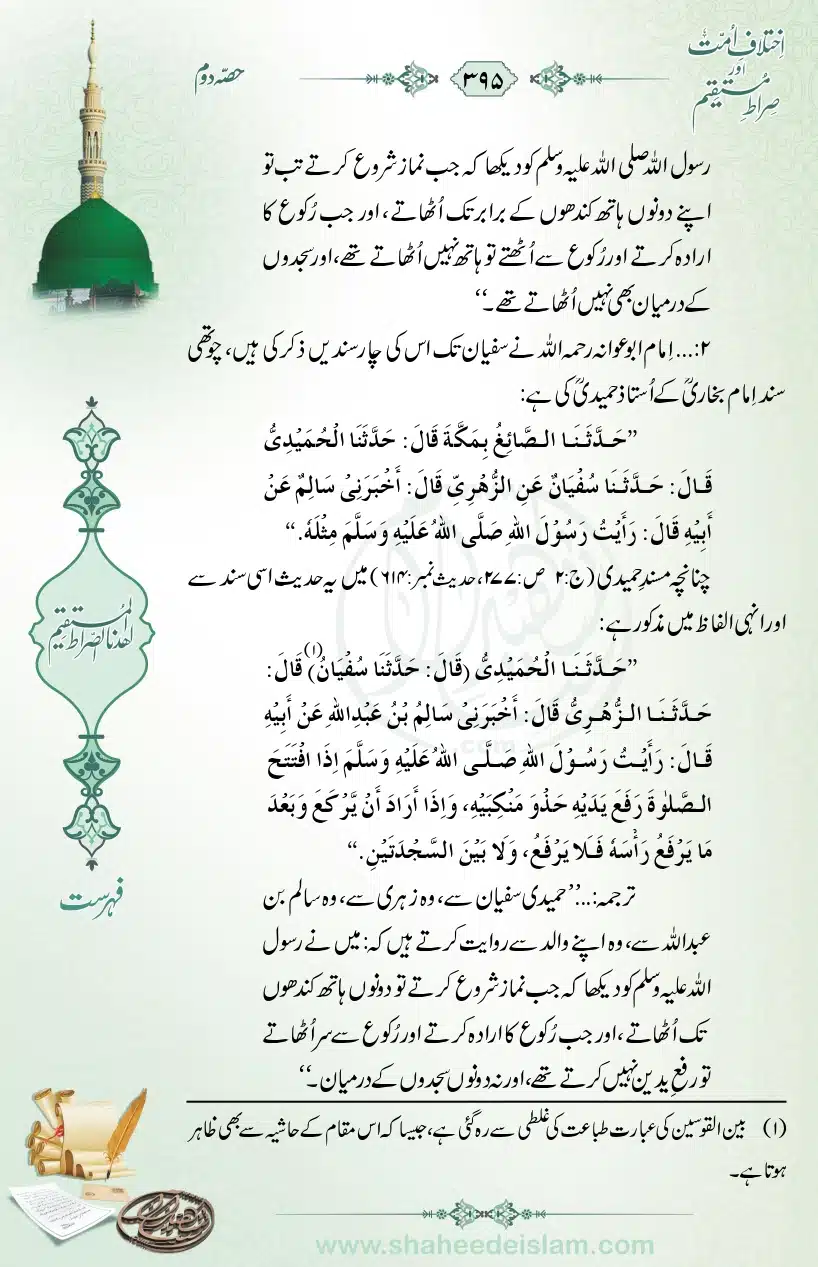 اِختلافِ اُمّت
اور
صِراطِ مُستقیم
۳۹۵
حصّہ دوم
رسول اللہ صلی اللہ علیہ وسلم کو دیکھا کہ جب نماز شروع کرتے تب تو
اپنے دونوں ہاتھ کندھوں کے برابر تک اُٹھاتے، اور جب رُکوع کا
ارادہ کرتے اور رُکوع سے اُٹھتے تو ہاتھ نہیں اُٹھاتے تھے، اور سجدوں
کے درمیان بھی نہیں اُٹھاتے تھے۔‘‘
۲:... اِمام ابوعوانہ رحمہ اللہ نے سفیان تک اس کی چار سندیں ذکر کی ہیں، چوتھی
سند اِمام بخاریؒ کے اُستاذ حمیدیؒ کی ہے:
”حَدَّثَنَا الصَّائِغُ بِمَكَّةَ قَالَ: حَدَّثَنَا الْحُمَيْدِىُّ
قَالَ: حَدَّثَنَا سُفْيَانُ عَنِ الزُّهْرِىِّ قَالَ: أَخْبَرَنِىْ سَالِمٌ عَنْ
أَبِيْهِ قَالَ: رَأَيْتُ رَسُوْلَ اللهِ صَلَّى اللهُ عَلَيْهِ وَسَلَّمَ مِثْلَهٗ.“
چنانچہ مسندِ حمیدی (ج:۲ ص:۲۷۷، حدیث نمبر:۶۱۴) میں یہ حدیث اسی سند سے
اور انہی الفاظ میں مذکور ہے:
”حَدَّثَنَا الْحُمَيْدِىُّ (قَالَ: حَدَّثَنَا سُفْيَانُ)(۱) قَالَ:
حَدَّثَنَا الزُّهْرِىُّ قَالَ: أَخْبَرَنِىْ سَالِمُ بْنُ عَبْدِاللهِ عَنْ أَبِيْهِ
قَالَ: رَأَيْتُ رَسُوْلَ اللهِ صَلَّى اللهُ عَلَيْهِ وَسَلَّمَ إِذَا افْتَتَحَ
الصَّلٰوةَ رَفَعَ يَدَيْهِ حَذْوَ مَنْكِبَيْهِ، وَإِذَا أَرَادَ أَنْ يَّرْكَعَ وَبَعْدَ
مَا يَرْفَعُ رَأْسَهٗ فَلَا يَرْفَعُ، وَلَا بَيْنَ السَّجْدَتَيْنِ.“
ترجمہ:...’’حمیدی سفیان سے، وہ زہری سے، وہ سالم بن
عبداللہ سے، وہ اپنے والد سے روایت کرتے ہیں کہ: میں نے رسول
اللہ علیہ وسلم کو دیکھا کہ جب نماز شروع کرتے تو دونوں ہاتھ کندھوں
تک اُٹھاتے، اور جب رُکوع کا ارادہ کرتے اور رُکوع سے سر اُٹھاتے
تو رفعِ یدین نہیں کرتے تھے، اور نہ دونوں سجدوں کے درمیان۔‘‘
(۱) بین القوسین کی عبارت طباعت کی غلطی سے رہ گئی ہے، جیسا کہ اس مقام کے حاشیہ سے بھی ظاہر
ہوتا ہے۔
اهدنا الصّراط المُستقيم
فہرست
www.shaheedeislam.com